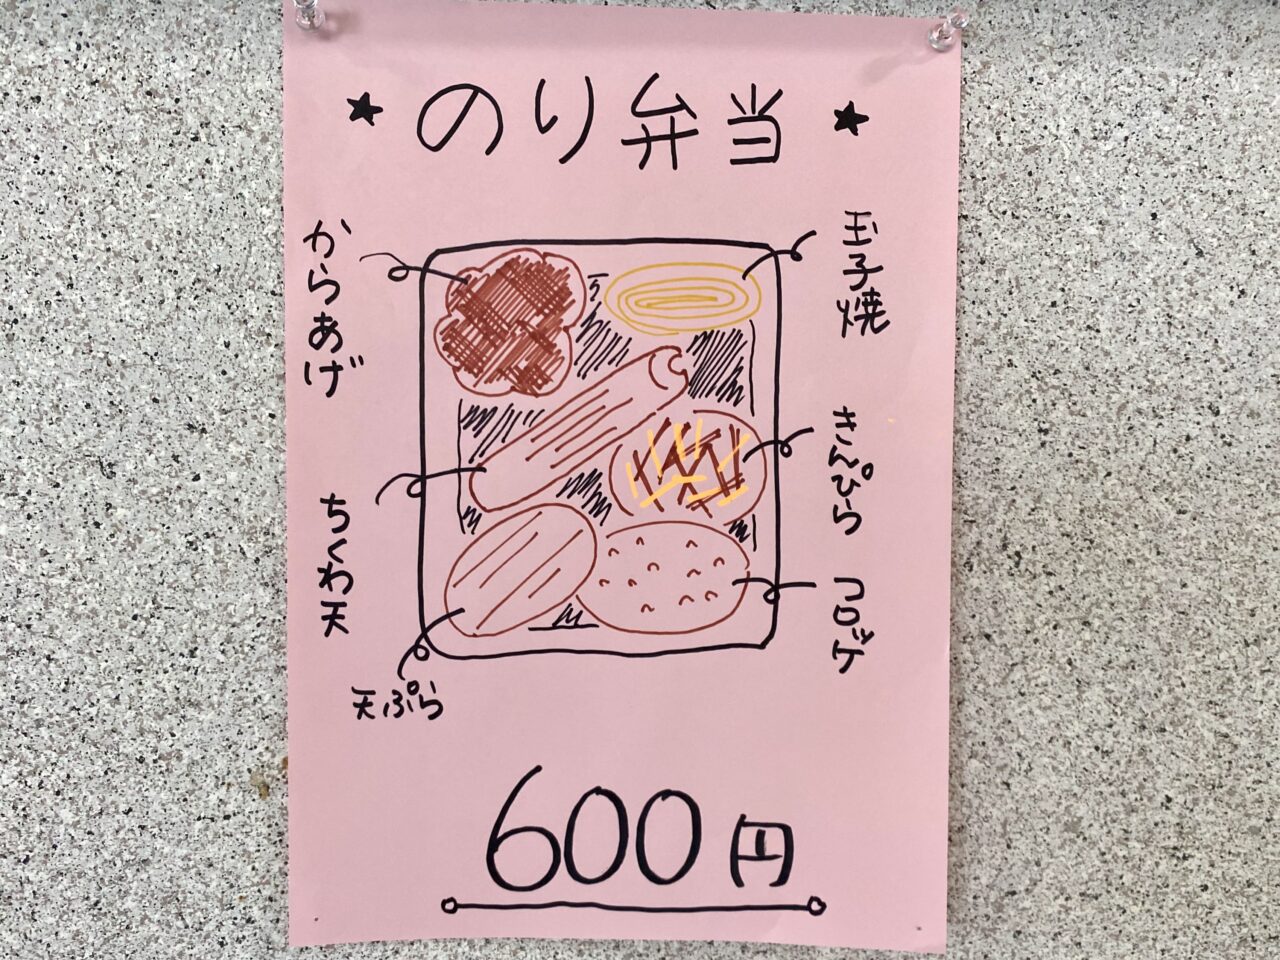 ★のり弁当★
からあげ
玉子焼
きんぴら
ちくわ天
コロッケ
天ぷら
600円